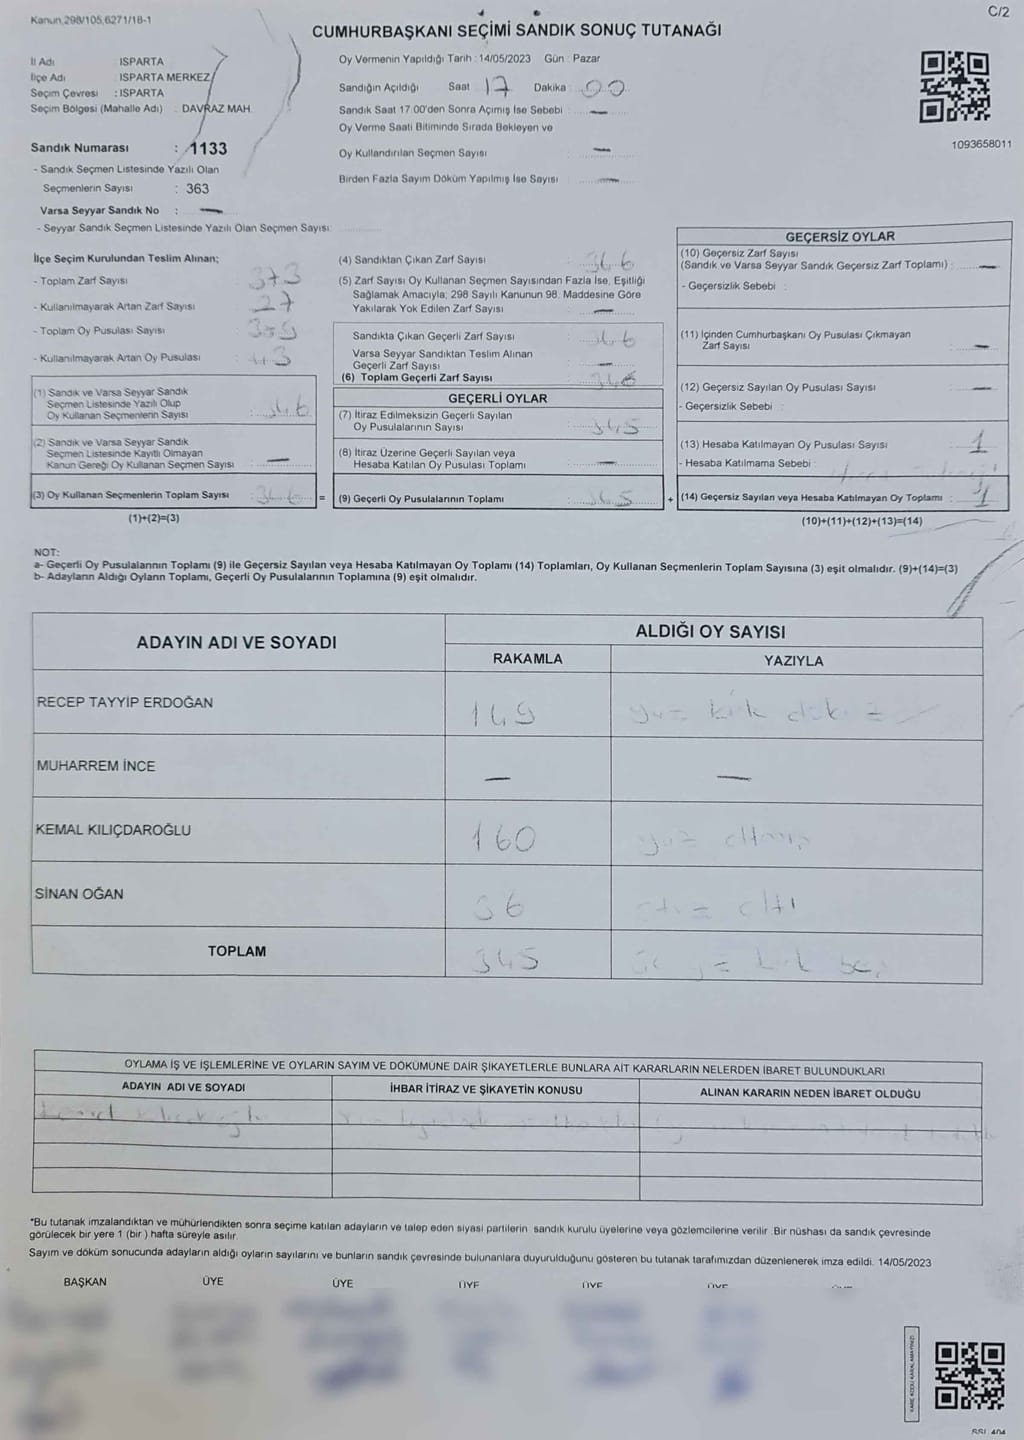 Kanun,298/105,6271/18-1
C/2
CUMHURBAŞKANI SEÇİMİ SANDIK SONUÇ TUTANAĞI
İl Adı : ISPARTA
İlçe Adı : ISPARTA MERKEZ
Seçim Çevresi : ISPARTA
Seçim Bölgesi (Mahalle Adı) : DAVRAZ MAH.
Sandık Numarası : 1133
- Sandık Seçmen Listesinde Yazılı Olan
Seçmenlerin Sayısı : 363
Varsa Seyyar Sandık No : —
- Seyyar Sandık Seçmen Listesinde Yazılı Olan Seçmen Sayısı:
Oy Vermenin Yapıldığı Tarih : 14/05/2023 Gün : Pazar
Sandığın Açıldığı Saat 17 Dakika : 00
Sandık Saat 17.00'den Sonra Açımış İse Sebebi : —
Oy Verme Saati Bitiminde Sırada Bekleyen ve
Oy Kullandırılan Seçmen Sayısı : —
Birden Fazla Sayım Döküm Yapılmış İse Sayısı : —
1093658011
İlçe Seçim Kurulundan Teslim Alınan;
- Toplam Zarf Sayısı : 373
- Kullanılmayarak Artan Zarf Sayısı : 27
- Toplam Oy Pusulası Sayısı :
- Kullanılmayarak Artan Oy Pusulası :
(1) Sandık ve Varsa Seyyar Sandık
Seçmen Listesinde Yazılı Olup
Oy Kullanan Seçmenlerin Sayısı : 346
(2) Sandık ve Varsa Seyyar Sandık
Seçmen Listesinde Kayıtlı Olmayan
Kanun Gereği Oy Kullanan Seçmen Sayısı : —
(3) Oy Kullanan Seçmenlerin Toplam Sayısı : 346 =
(1)+(2)=(3)
(4) Sandıktan Çıkan Zarf Sayısı : 346
(5) Zarf Sayısı Oy Kullanan Seçmen Sayısından Fazla İse, Eşitliği
Sağlamak Amacıyla; 298 Sayılı Kanunun 98. Maddesine Göre
Yakılarak Yok Edilen Zarf Sayısı : —
Sandıkta Çıkan Geçerli Zarf Sayısı : 346
Varsa Seyyar Sandıktan Teslim Alınan
Geçerli Zarf Sayısı : —
(6) Toplam Geçerli Zarf Sayısı : 346
GEÇERLİ OYLAR
(7) İtiraz Edilmeksizin Geçerli Sayılan
Oy Pusulalarının Sayısı : 345
(8) İtiraz Üzerine Geçerli Sayılan veya
Hesaba Katılan Oy Pusulası Toplamı : —
(9) Geçerli Oy Pusulalarının Toplamı : 345 +
GEÇERSİZ OYLAR
(10) Geçersiz Zarf Sayısı
(Sandık ve Varsa Seyyar Sandık Geçersiz Zarf Toplamı) : —
- Geçersizlik Sebebi :
(11) İçinden Cumhurbaşkanı Oy Pusulası Çıkmayan
Zarf Sayısı : —
(12) Geçersiz Sayılan Oy Pusulası Sayısı : —
- Geçersizlik Sebebi :
(13) Hesaba Katılmayan Oy Pusulası Sayısı : 1
- Hesaba Katılmama Sebebi :
(14) Geçersiz Sayılan veya Hesaba Katılmayan Oy Toplamı : 1
(10)+(11)+(12)+(13)=(14)
NOT:
a- Geçerli Oy Pusulalarının Toplamı (9) ile Geçersiz Sayılan veya Hesaba Katılmayan Oy Toplamı (14) Toplamları, Oy Kullanan Seçmenlerin Toplam Sayısına (3) eşit olmalıdır. (9)+(14)=(3)
b- Adayların Aldığı Oyların Toplamı, Geçerli Oy Pusulalarının Toplamına (9) eşit olmalıdır.
ADAYIN ADI VE SOYADI
ALDIĞI OY SAYISI
RAKAMLA YAZIYLA
RECEP TAYYİP ERDOĞAN 149 yüz kırk dokuz
MUHARREM İNCE — —
KEMAL KILIÇDAROĞLU 160 yüz altmış
SİNAN OĞAN 36 otuz altı
TOPLAM 345 üç yüz kırk beş
OYLAMA İŞ VE İŞLEMLERİNE VE OYLARIN SAYIM VE DÖKÜMÜNE DAİR ŞİKAYETLERLE BUNLARA AİT KARARLARIN NELERDEN İBARET BULUNDUKLARI
ADAYIN ADI VE SOYADI İHBAR İTİRAZ VE ŞİKAYETİN KONUSU ALINAN KARARIN NEDEN İBARET OLDUĞU
*Bu tutanak imzalandıktan ve mühürlendikten sonra seçime katılan adayların ve talep eden siyasi partilerin sandık kurulu üyelerine veya gözlemcilerine verilir. Bir nüshası da sandık çevresinde
görülecek bir yere 1 (bir ) hafta süreyle asılır.
Sayım ve döküm sonucunda adayların aldığı oyların sayılarını ve bunların sandık çevresinde bulunanlara duyurulduğunu gösteren bu tutanak tarafımızdan düzenlenerek imza edildi. 14/05/2023
BAŞKAN ÜYE ÜYE ÜYE ÜYE ÜYE
KARE KODU KARALAMAYINIZ!